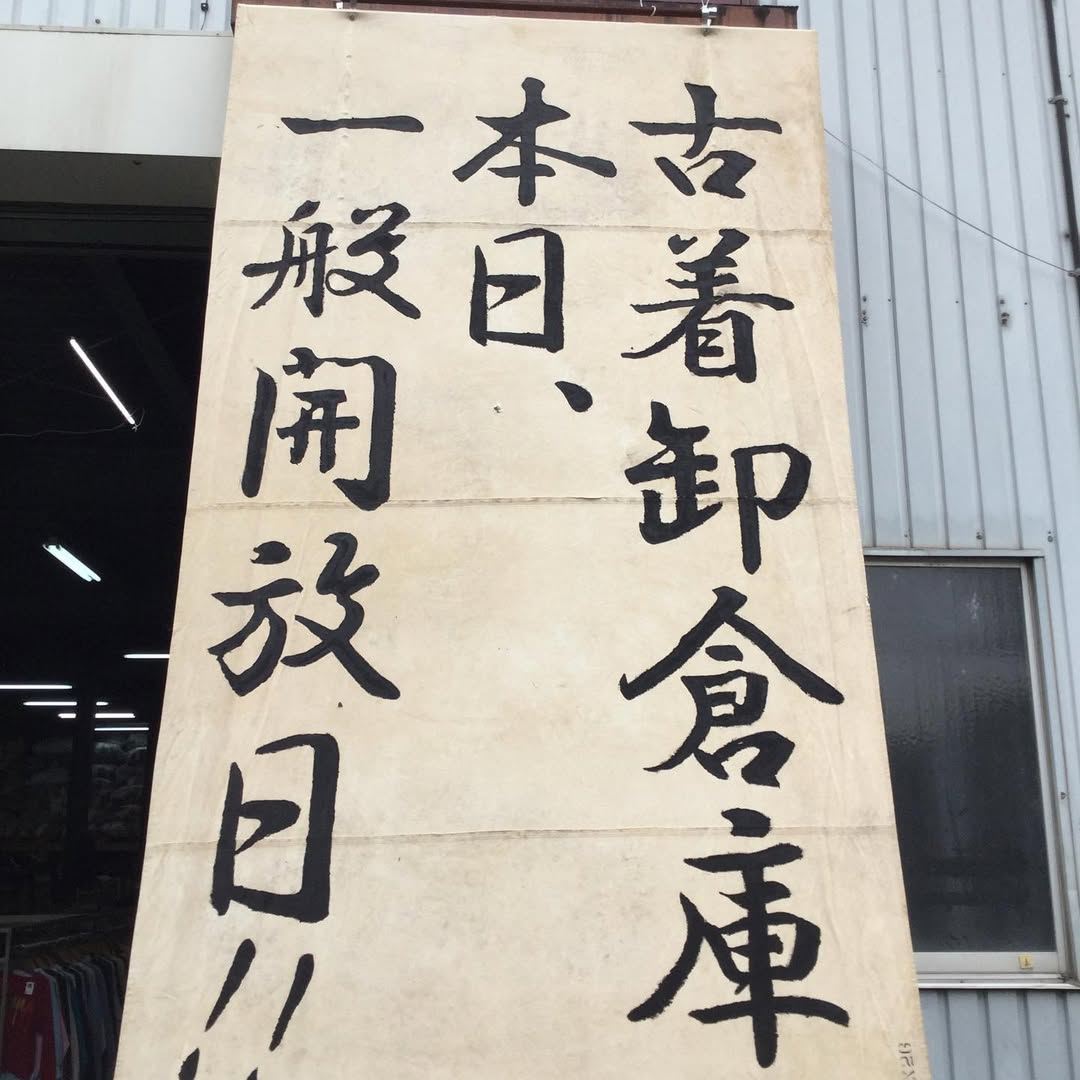 古着卸倉庫
本日、
一般開放日!!